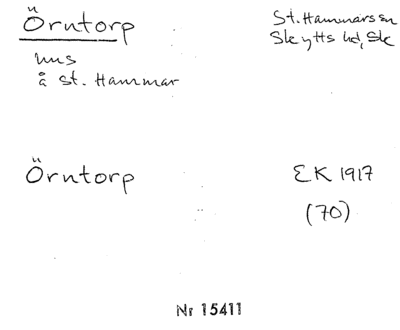 Örntorp
St. Hammars sn
Skytts hd, Sk
hus
å St. Hammar
Örntorp
EK 1917
(70)
Nr 15411